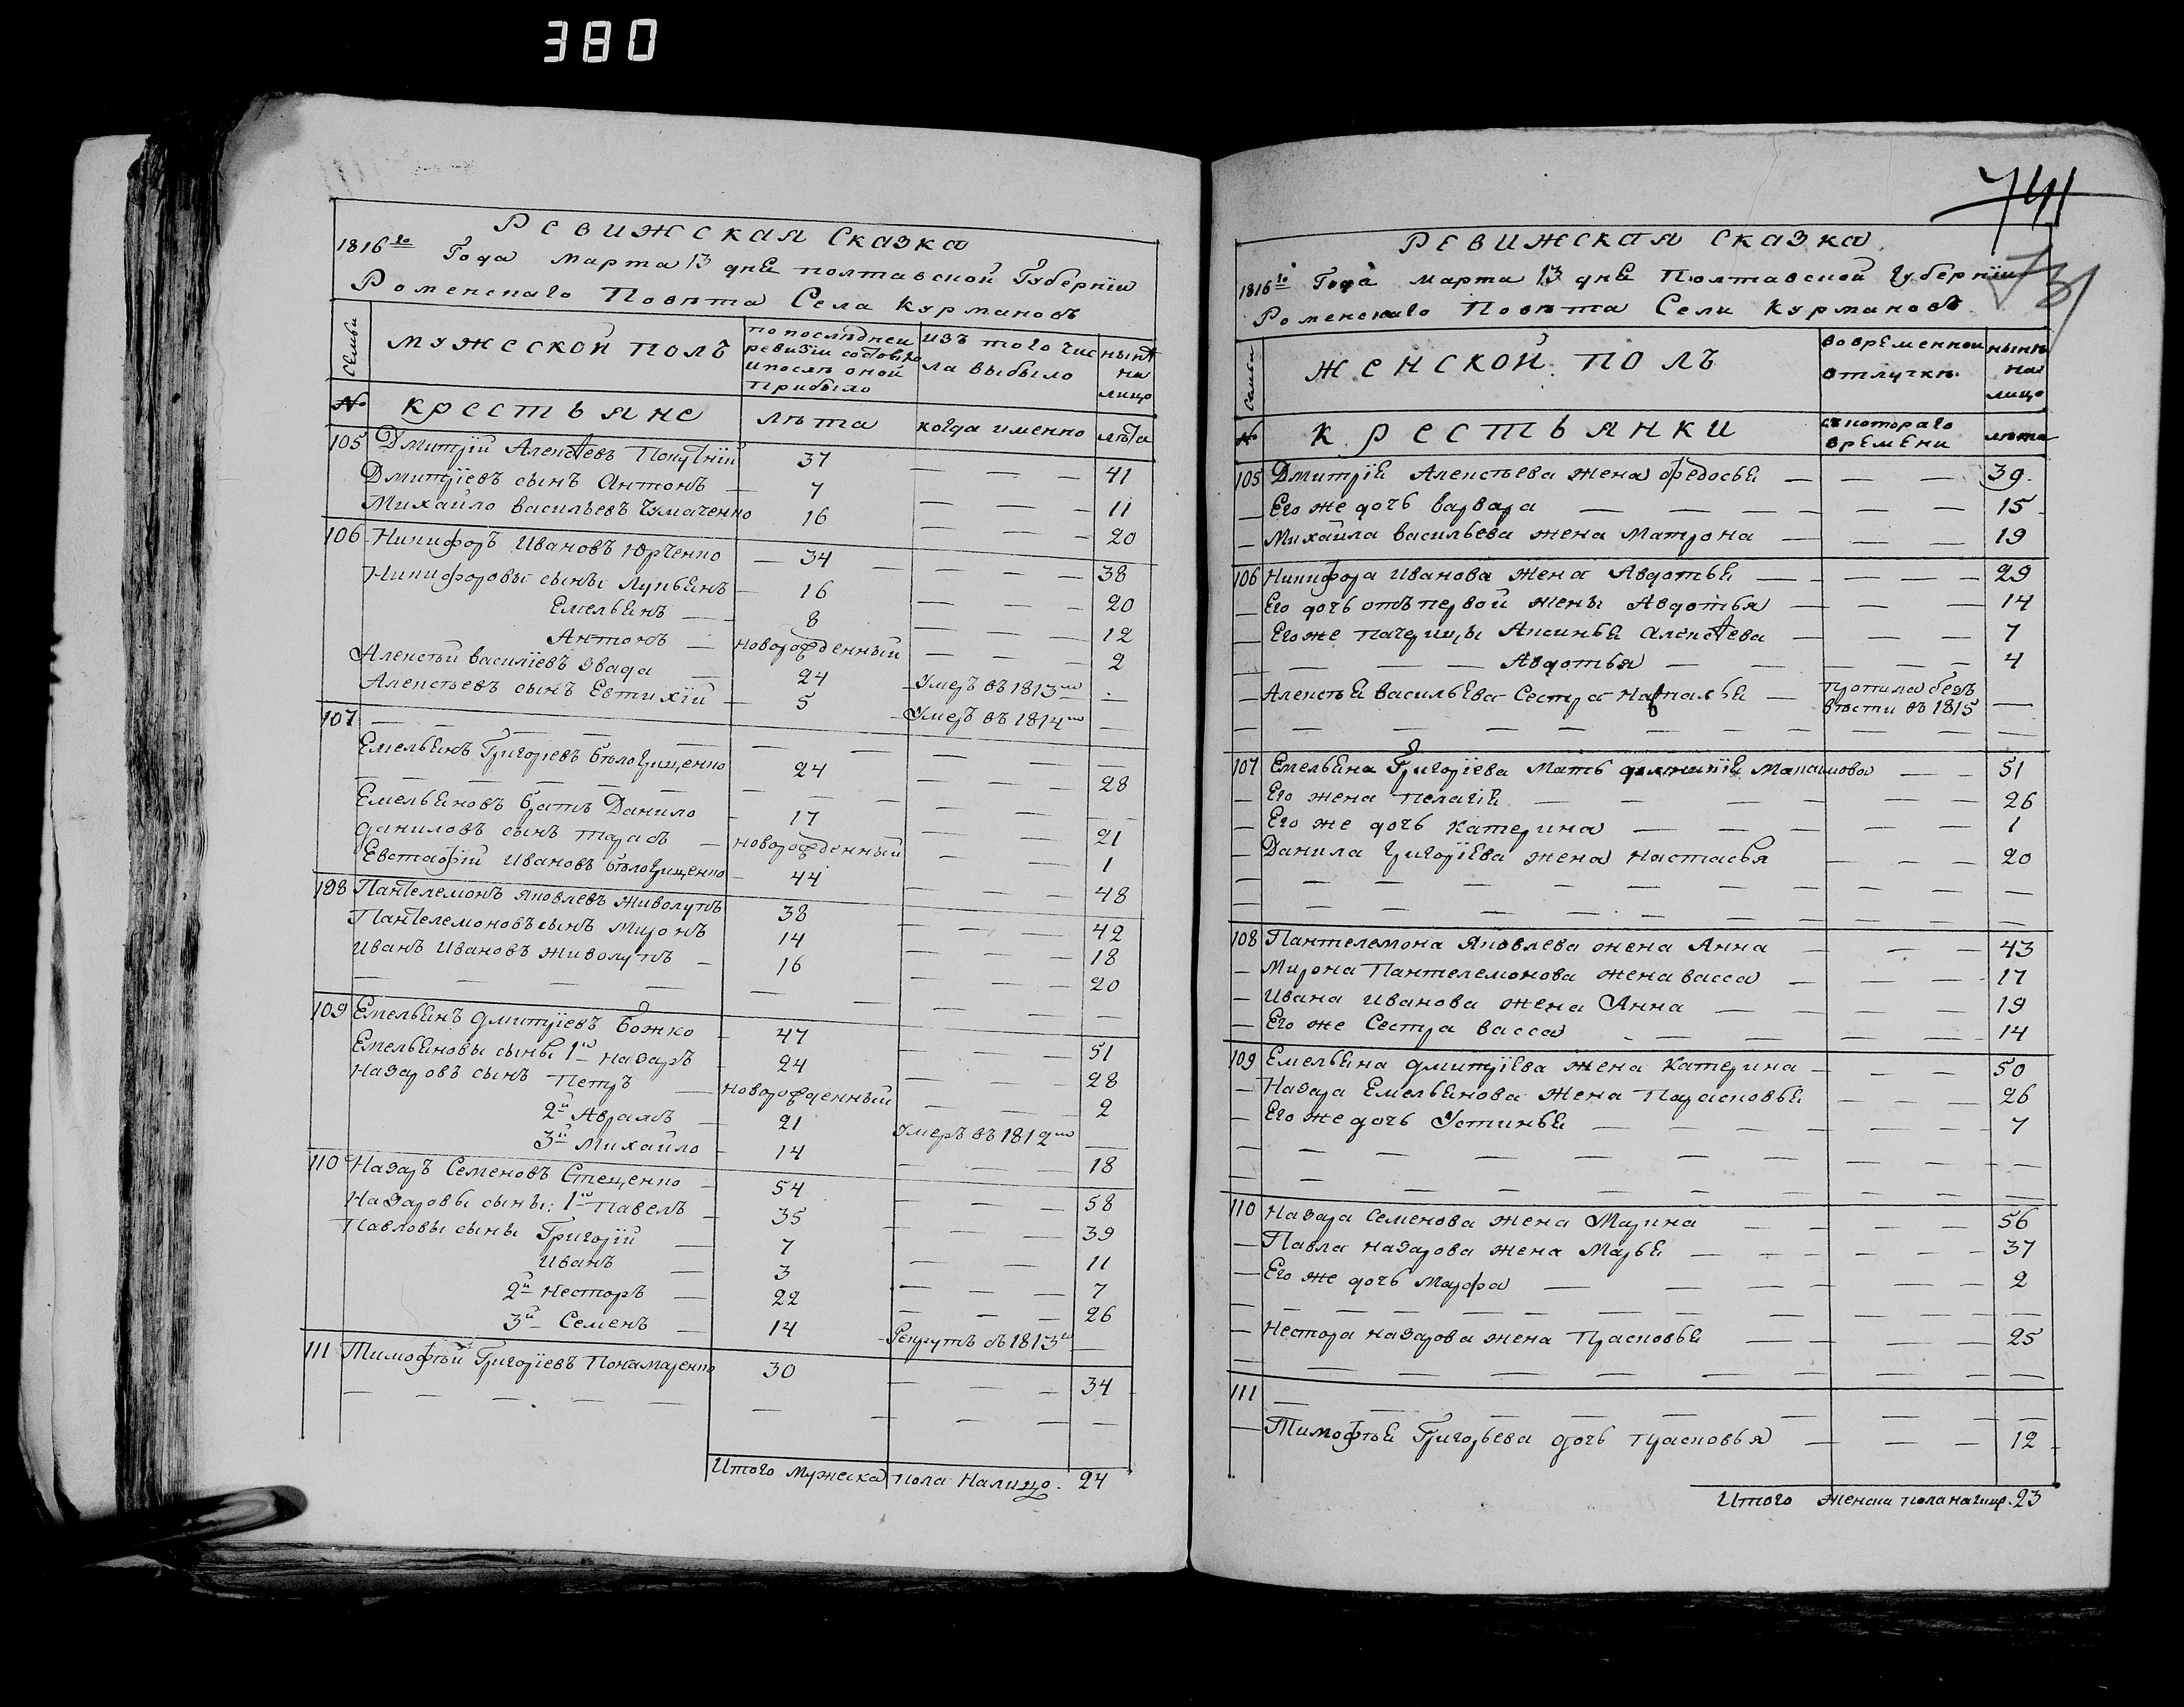 380
Ревижская Сказка
1816го Года марта 13 дня полтавской Губернїи
Роменскаго Повѣта Села Курмановъ
Семьи
мужеской полъ
по послѣдней ревизіи состояло и послѣ оной прибыло
изъ того числа выбыло
нынѣ на лицо
№ крестьяне лѣта когда именно лѣта
105 Дмитрїй Алексѣевъ Покутнїй 37 — — — 41
Дмитрїевъ сынъ Антонъ — 7 — — — 11
Михайло васильевъ Чумаченко 16 — — — 20
106 Никифоръ Ивановъ Юрченко — 34 — — — 38
Никифоровы сыны Лукьянъ — 16 — — 20
Емельянъ — 8 — — — 12
Антонъ — новорожденный — — — 2
Алексѣй василїевъ Звада — 24 Умеръ въ 1813мъ —
Алексѣевъ сынъ Евтихїй — 5 Умеръ въ 1814мъ —
107 — — — — — — — —
Емельянъ Григорїевъ Бѣлогрищенко 24 — — — 28
— — — — — — — — —
Емельяновъ братъ Данило — 17 — — 21
даниловъ сынъ тарасъ — новорожденный — — 1
Евстафїй Ивановъ бѣлогрищенко — 44 — — — 48
108 Пантелемонъ Яковлевъ Живолупъ 38 — — — 42
Пантелемоновъ сынъ Миронъ 14 — — — 18
Иванъ Ивановъ Живолупъ — 16 — — — 20
— — — — — — — — —
109 Емельянъ дмитрїевъ Божко — 47 — — — 51
Емельяновы сыны 1й назаръ — 24 — — — 28
Назаровъ сынъ Петръ — новорожденный — — 2
2й Аврамъ — 21 Умеръ въ 1812мъ —
3й Михайло — 14 — — — 18
110 Назаръ Семеновъ Стещенко — 54 — — — 58
Назаровы сыны: 1й Павелъ — 35 — — — 39
Павловы сыны Григорїй — 7 — — — 11
Иванъ — 3 — — — 7
2й Несторъ — 22 — — — 26
3й Семенъ — 14 Рекрутъ въ 1813м —
111 Тимофѣй Григорїевъ Понамаренко 30 — — — 34
— — — — — — — — —
Итого мужеска пола Налицо. 24
741
731
Ревижская сказка
1816го Года марта 13 дня Полтавской губернїи
Роменскаго Повѣта Села Курмановъ
Семьи
женской полъ
во временной отлучкѣ
нынѣ на лицо
№ крестьянки съ котораго времени лѣта
105 Дмитрїя Алексѣева жена федосья — — — 39.
— Его же дочь варвара — — — — 15
— Михайла васильева жена Матрона — — — 19
106 Никифора Иванова жена Авдотья — — — — 29
— Его дочь отъ первой жены Авдотья — — — 14
— Его же пачерицы Аксинья Алексѣева — — — 7
— — — Авдотья — — — — 4
— Алексѣя васильева Сестра Наталья — пропала безъ вѣсти въ 1815 —
— — — — — — — — —
107 Емельяна Григорїева Мать Максимова — — 51
— Его жена пелагїя — — — — 26
— Его же дочь катерина — — — — 1
— Данила григорїева жена Настасья — — — 20
— — — — — — — — —
— — — — — — — — —
108 Пантелемона Яковлева жена Анна — — — 43
— Мирона Пантелемонова жена васса — — — 17
— Ивана иванова жена Анна — — — — 19
— Его же Сестра васса — — — — 14
109 Емельяна дмитрїева жена Катерина — — — 50
— Назара Емельянова жена Парасковья — — — 26
— Его же дочь Устинья — — — — 7
— — — — — — — — —
— — — — — — — — —
110 Назара Семенова жена Марина — — — — 56
— Павла назарова жена Марья — — — — 37
— Его же дочь Марфа — — — — 2
— — — — — — — — —
— Нестора назарова жена Прасковья — — — 25
— — — — — — — — —
111 — — — — — — — —
— Тимофѣя Григорьева дочь прасковья — — — 12
Итого женска пола налицо. 23